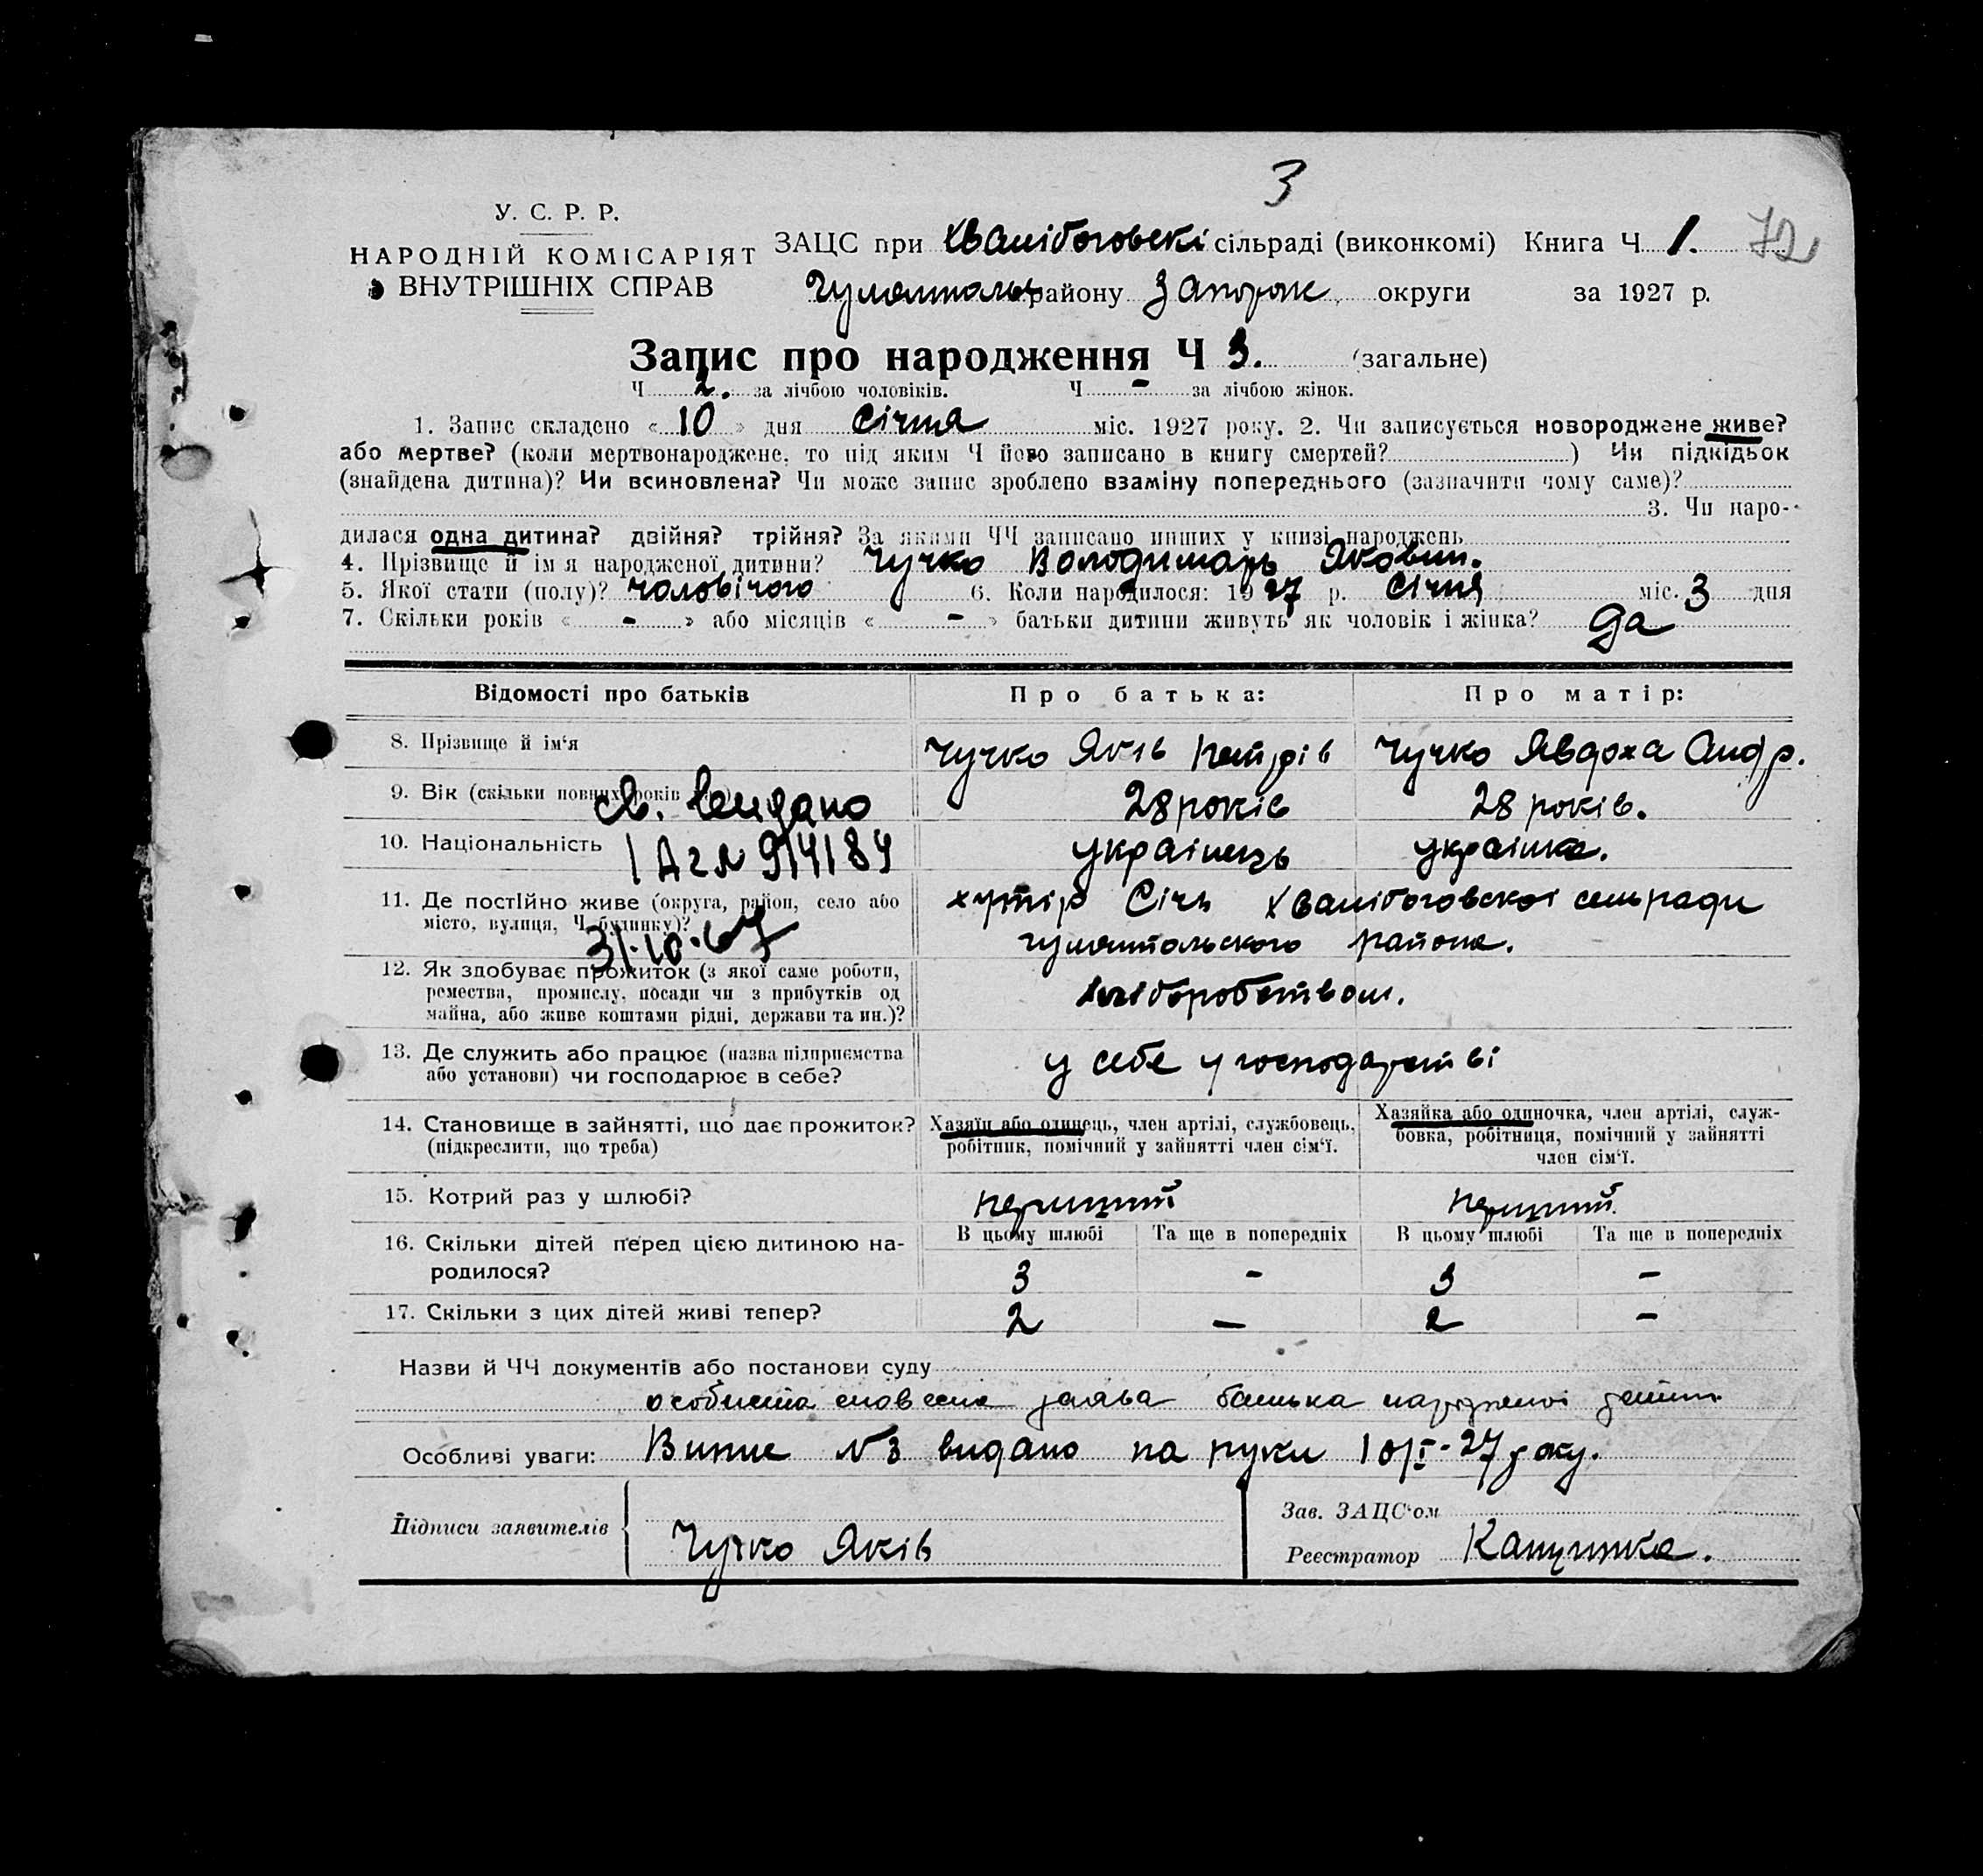 3
У. С. Р. Р.
НАРОДНІЙ КОМІСАРІЯТ
ВНУТРІШНІХ СПРАВ
ЗАЦС при Хвалібоговскі сільраді (виконкомі) Книга Ч 1. 72
району Запорож округи за 1927 р.
Запис про народження Ч 3. (загальне)
Ч 2. за лічбою чоловіків. Ч - за лічбою жінок.
1. Запис складено « 10 » дня Січня міс. 1927 року. 2. Чи записується новороджене живе?
або мертве? (коли мертвонароджене, то під яким Ч його записано в книгу смертей? ) Чи підкідьок
(знайдена дитина)? Чи всиновлена? Чи може запис зроблено взаміну попереднього (зазначити чому саме)?
3. Чи наро-
дилася одна дитина? двійня? трійня? За якими ЧЧ записано инших у книзі народжень
4. Прізвище й ім'я народженої дитини? Чучко Володимарь Яковин.
5. Якої стати (полу)? чоловічого 6. Коли народилося: 1927 р. Січня міс. 3 дня
7. Скільки років « - » або місяців « - » батьки дитини живуть як чоловік і жінка? Да
Відомості про батьків Про батька: Про матір:
8. Прізвище й ім'я Чучко Яків Петрів Чучко Явдоха Андр.
9. Вік (скільки повних років 28 років 28 років.
св. видано
10. Національність українець українка.
31.10.67
11. Де постійно живе (округа, район, село або хутір Січь Хвалібоговскої сельради
місто, вулиця, Ч будинку)? района.
12. Як здобуває прожиток (з якої саме роботи,
ремества, промислу, посади чи з прибутків од хліборобством.
майна, або живе коштами рідні, держави та ин.)?
13. Де служить або працює (назва підприємства у себе у господарстві
або установи) чи господарює в себе?
14. Становище в зайнятті, що дає прожиток? Хазяїн або одинець, член артілі, службовець, Хазяйка або одиночка, член артілі, служ-
(підкреслити, що треба) робітник, помічний у зайнятті член сім'ї. бовка, робітниця, помічний у зайнятті
член сім'ї.
15. Котрий раз у шлюбі? перший перший
В цьому шлюбі Та ще в попередніх В цьому шлюбі Та ще в попередніх
16. Скільки дітей перед цією дитиною на-
родилося? 3 - 3 -
17. Скільки з цих дітей живі тепер? 2 - 2 -
Назви й ЧЧ документів або постанови суду
особиста словесна заява батька
Особливі уваги: Випис №3 видано на руки 10/I-27 року.
Підписи заявителів Чучко Яків
Зав. ЗАЦС'ом
Реєстратор